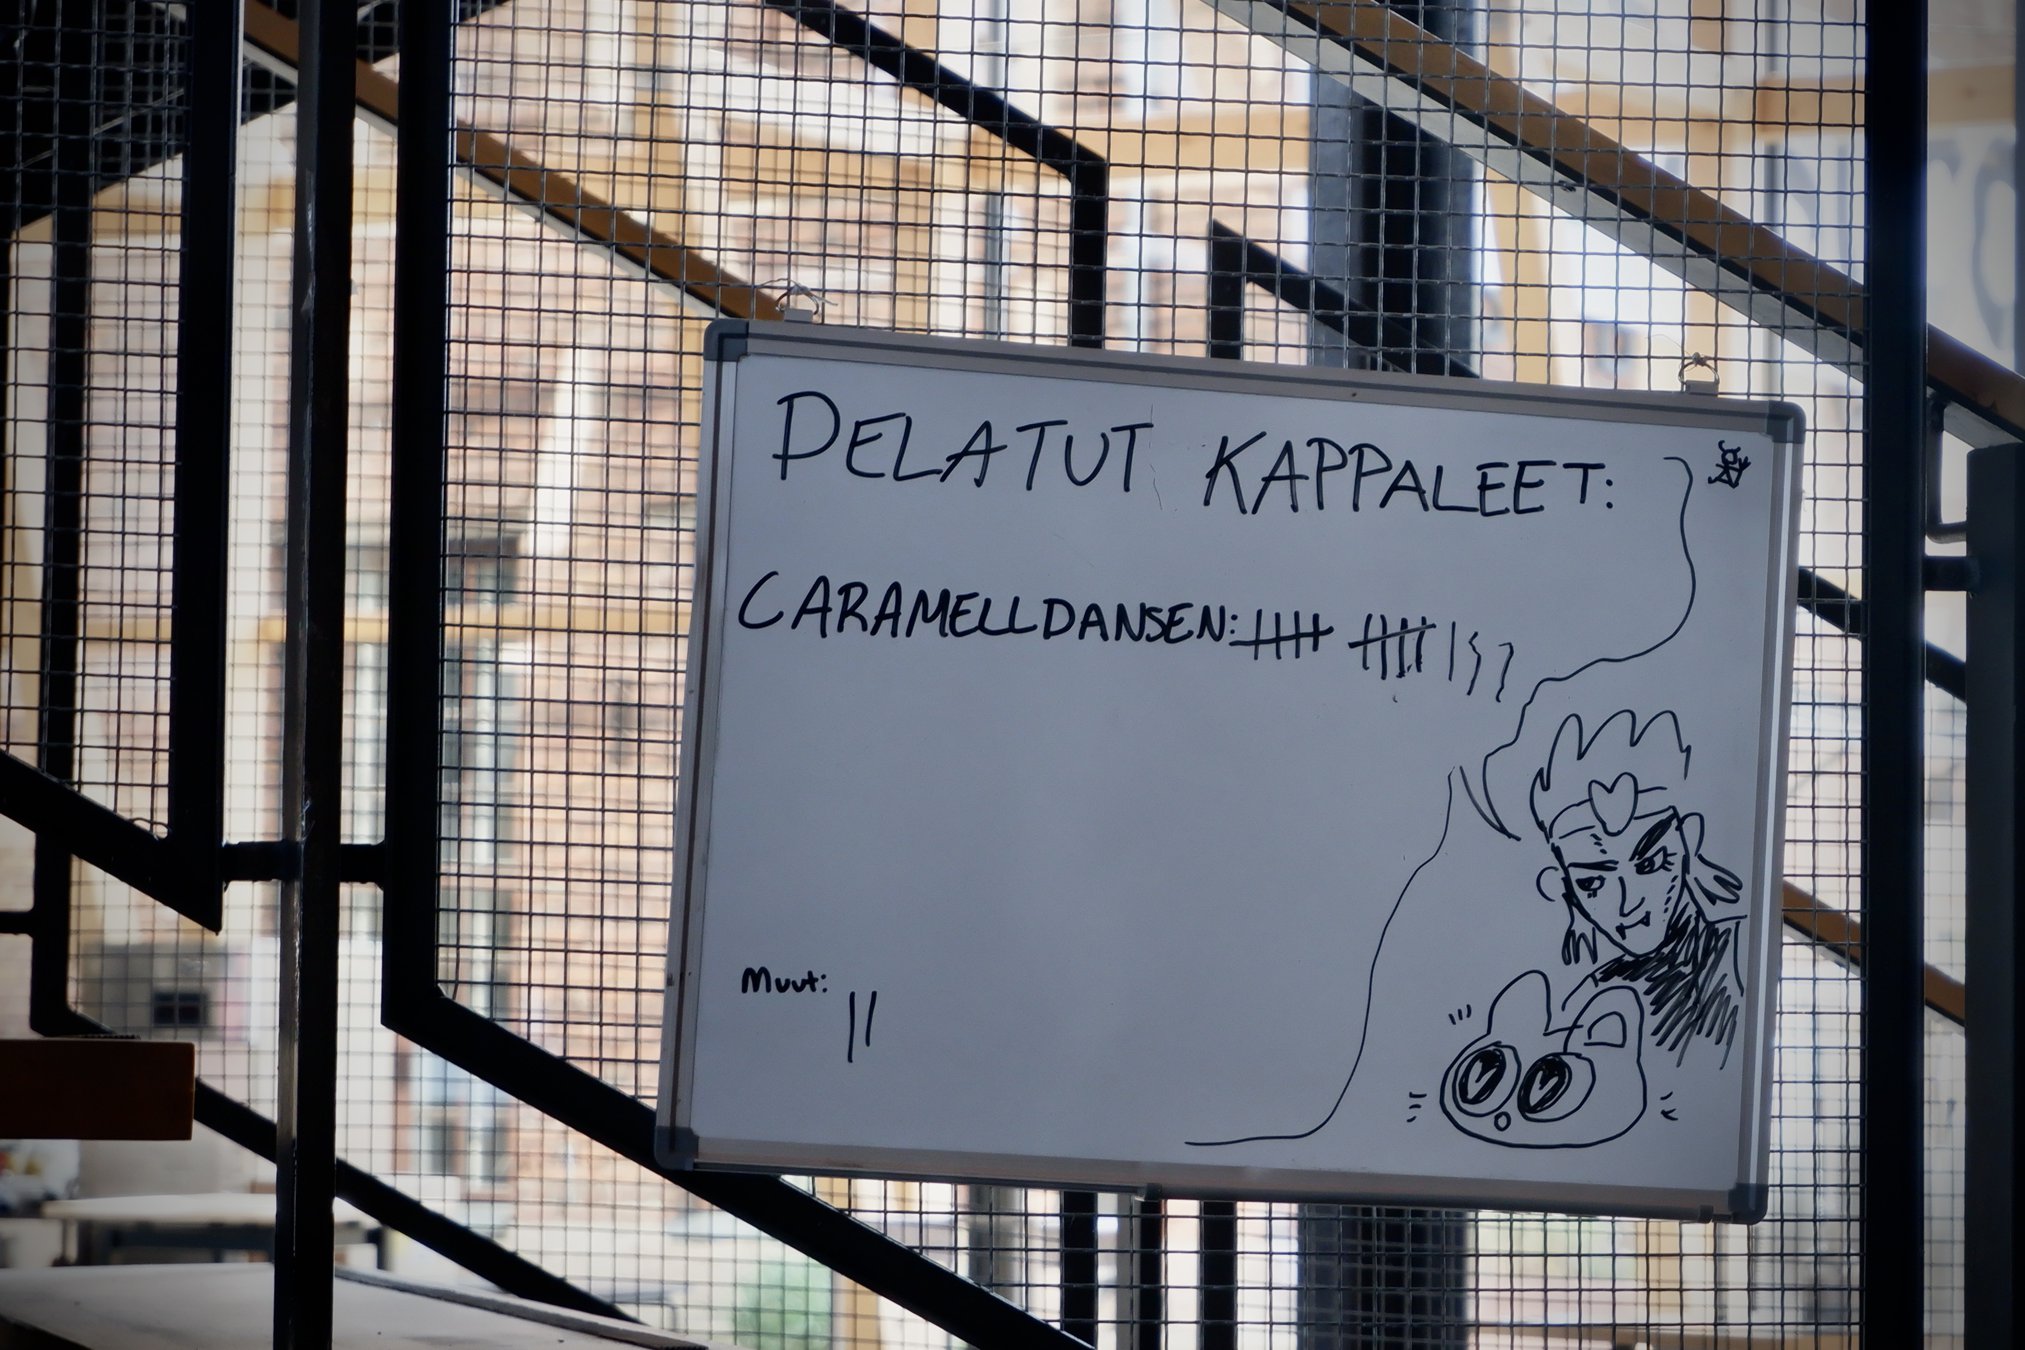 PELATUT KAPPALEET:
CARAMELLDANSEN:
Muut: